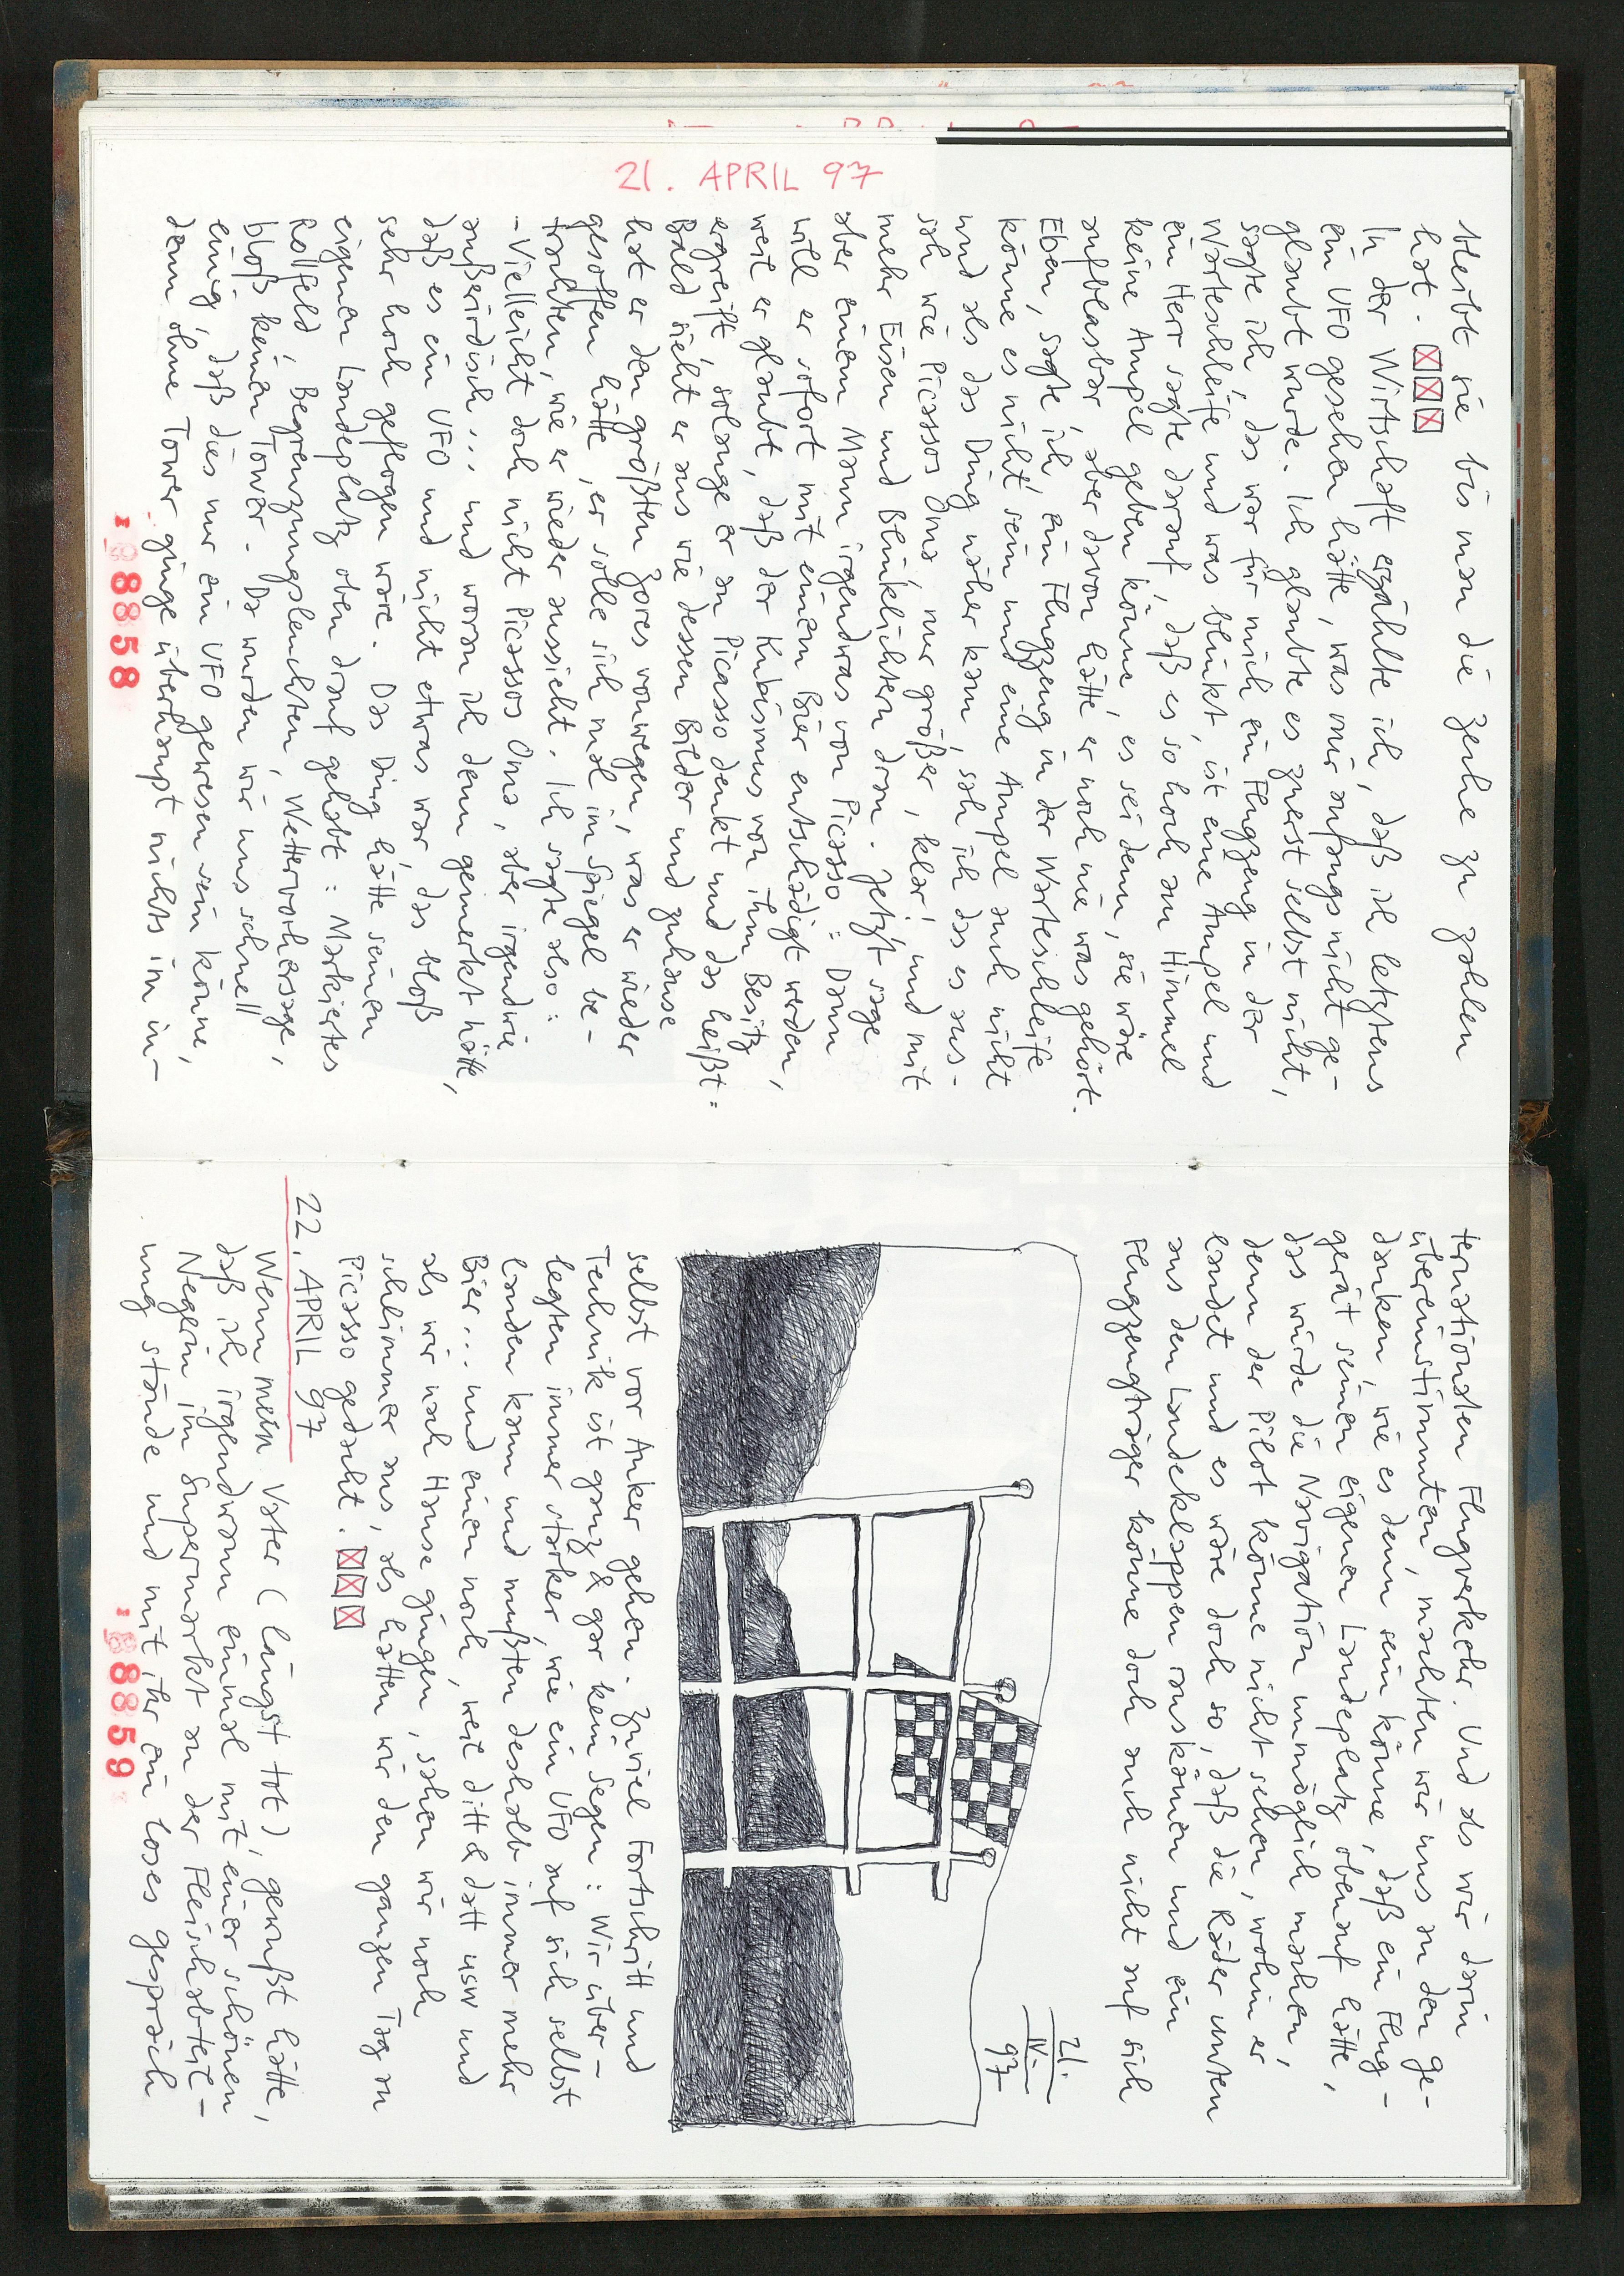 bleibt sie bis man die Zeche zu zahlen
hat.
In der Wirtschaft erzählte ich, daß ich letztens
ein UFO gesehen hätte, was mir anfangs nicht ge-
glaubt wurde. Ich glaubte es zuerst selbst nicht,
sagte ich, das war für mich ein Flugzeug in der
Warteschleife und was blinkt, ist eine Ampel und
ein Herr sagte darauf, daß es so hoch am Himmel
keine Ampel geben könne, es sei denn, sie wäre
aufblasbar, aber davon hätt' er noch nie was gehört.
Eben, sagte ich, ein Flugzeug in der Warteschleife
könne es nicht sein und eine Ampel auch nicht
und als das Ding näher kam, sah ich das es aus-
sah wie Picassos Oma, nur größer, klar! und mit
mehr Eisen und Blinklichtern dran. Jetzt sage
aber einem Mann irgendwas von Picasso: Dann
will er sofort mit einem Bier entschädigt werden,
weil er glaubt, daß der Kubismus von ihm Besitz
ergreift, solange er an Picasso denkt und das heißt:
Bald sieht er aus wie dessen Bilder und zuhause
hat er den größten Zores vonwegen, was er wieder
gesoffen hätte, er solle sich mal im Spiegel be-
trachten, wie er wieder aussieht. Ich sagte also:
- Vielleicht doch nicht Picassos Oma, aber irgendwie
außerirdisch... und woran ich denn gemerkt hätte,
daß es ein UFO und nicht etwas war, das bloß
sehr hoch geflogen wäre. Das Ding hätte seinen
eigenen Landeplatz oben drauf gehabt: Markiertes
Rollfeld, Begrenzungsleuchten, Wettervorhersage,
bloß keinen Tower. Da wurden wir uns schnell
einig, daß dies nur ein UFO gewesen sein könne,
denn ohne Tower ginge überhaupt nichts im in-
21. APRIL 97
8858
ternationalen Flugverkehr. Und als wir darin
übereinstimmten, machten wir uns an den Ge-
danken, wie es denn sein könne, daß ein Flug-
gerät seinen eigenen Landeplatz obenauf hätte,
das würde die Navigation unmöglich machen,
denn der Pilot könne nicht sehen, wohin er
landet und es wäre doch so, daß die Räder unten
aus den Landeklappen rauskämen und ein
Flugzeugträger könne doch auch nicht auf sich
21.
IV.
97
selbst vor Anker gehen. Zuviel Fortschritt und
Technik ist ganz & gar kein Segen: Wir über-
legten immer stärker, wie ein UFO auf sich selbst
landen kann und mußten deshalb immer mehr
Bier... und einen noch, weil ditt & datt usw und
als wir nach Hause gingen, sahen wir noch
schlimmer aus, als hätten wir den ganzen Tag an
Picasso gedacht.
22. APRIL 97
Wenn mein Vater (längst tot), gewußt hätte,
daß ich irgendwann einmal mit einer schönen
Negerin im Supermarkt an der Fleischabteil-
ung stände und mit ihr ein loses Gespräch
8859